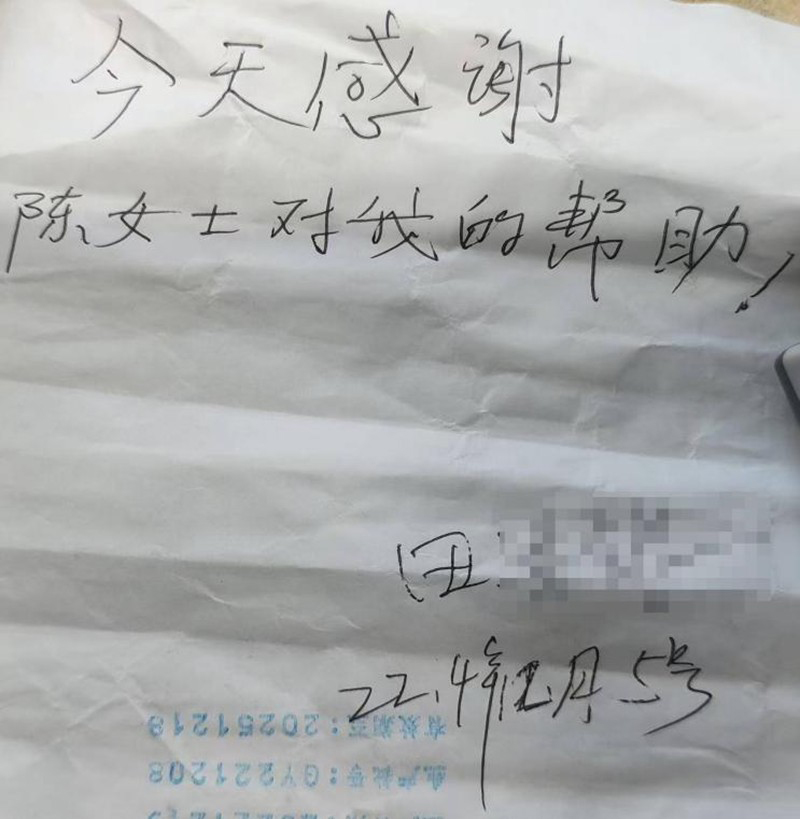 今天感谢
陈女士对我的帮助!
田
22.4年12月5号
有效期至:20251218
生产批号:GY221208